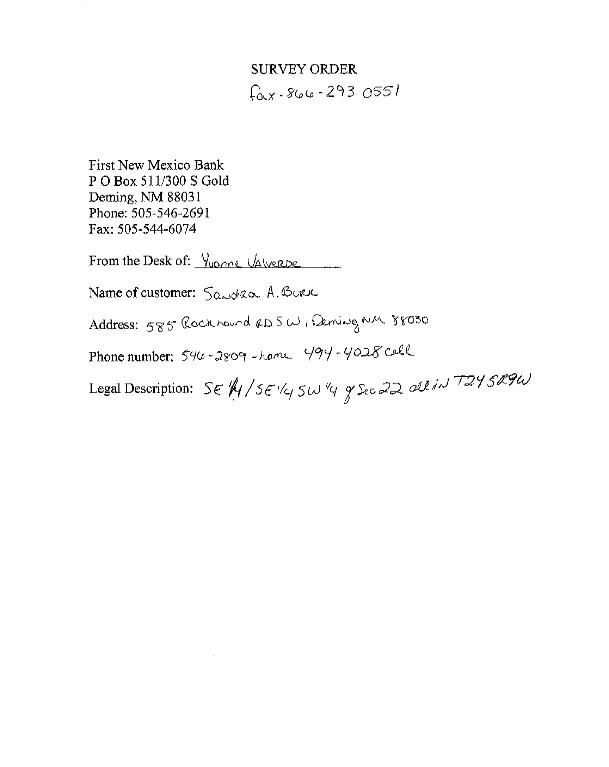 SURVEY ORDER
fax - 866 - 293 0551
First New Mexico Bank
P O Box 511/300 S Gold
Deming, NM 88031
Phone: 505-546-2691
Fax: 505-544-6074
From the Desk of: Yvonne Valverde
Name of customer: Sandra A. Burk
Address: 585 Rockhound RD SW, Deming NM 88030
Phone number: 546-2809 - home 494-4028 cell
Legal Description: SE 1/4 / SE 1/4 SW 1/4 of Sec 22 all in T24S R9W